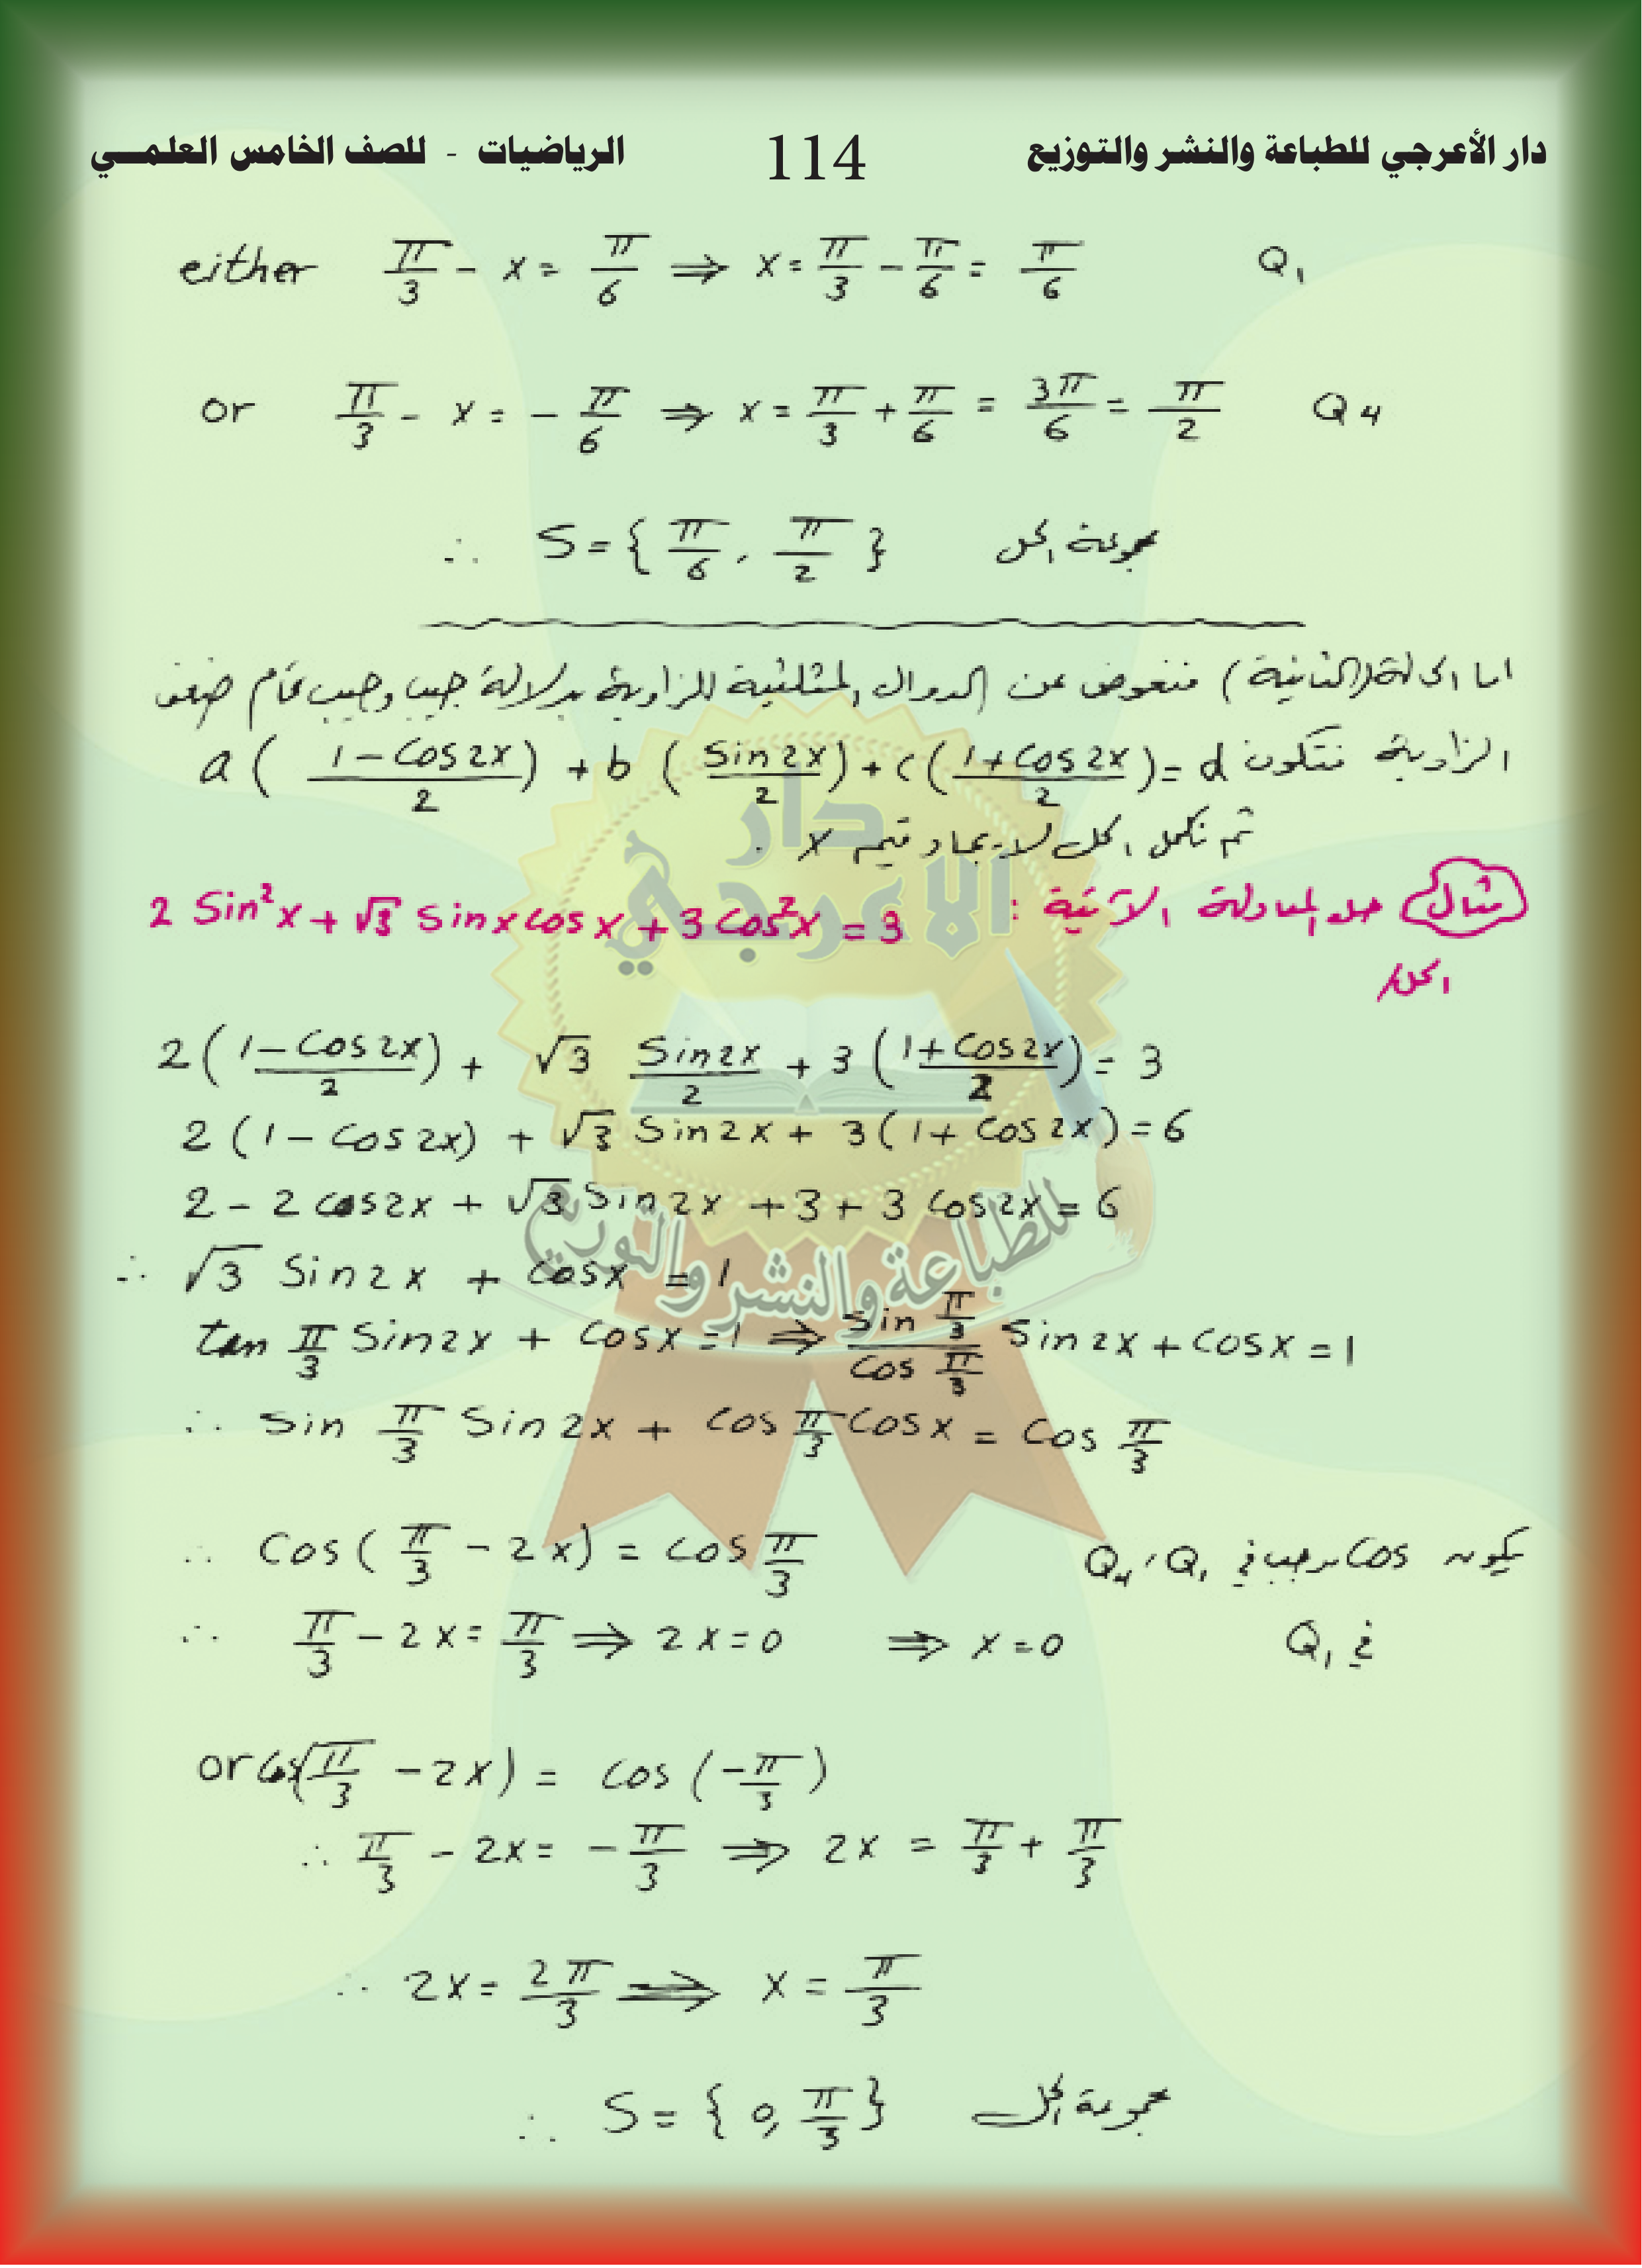 دار الأعرجي للطباعة والنشر والتوزيع 114 الرياضيات - للصف الخامس العلمـــي
either π/3 - x = π/6 ⇒ x = π/3 - π/6 = π/6 Q₁
or π/3 - x = - π/6 ⇒ x = π/3 + π/6 = 3π/6 = π/2 Q₄
∴ S = { π/6 , π/2 } مجموعة الحل
اما الحالة (الثانية) فنعوض عن الدوال المثلثية للزاوية بدلالة جيب وجيب تمام ضعف
الزاوية فتكون a ( (1 - Cos 2x)/2 ) + b ( (Sin 2x)/2 ) + c ( (1 + Cos 2x)/2 ) = d
ثم نكمل الحل لايجاد قيم x .
مثال حل المعادلة الآتية : 2 Sin²x + √3 Sin x cos x + 3 Cos²x = 3
الحل/
2 ( (1 - Cos 2x)/2 ) + √3 (Sin 2x)/2 + 3 ( (1 + Cos 2x)/2 ) = 3
2 (1 - Cos 2x) + √3 Sin 2x + 3 (1 + Cos 2x) = 6
2 - 2 cos 2x + √3 Sin 2x + 3 + 3 Cos 2x = 6
∴ √3 Sin 2x + Cos x = 1
tan π/3 Sin 2x + Cos x = 1 ⇒ (Sin π/3)/(Cos π/3) Sin 2x + Cos x = 1
∴ Sin π/3 Sin 2x + Cos π/3 Cos x = Cos π/3
∴ Cos ( π/3 - 2x ) = Cos π/3 يكون Cos موجب في Q₁ , Q₄
∴ π/3 - 2x = π/3 ⇒ 2x = 0 ⇒ x = 0 في Q₁
or Cos( π/3 - 2x ) = Cos ( - π/3 )
∴ π/3 - 2x = - π/3 ⇒ 2x = π/3 + π/3
∴ 2x = 2π/3 ⇒ x = π/3
∴ S = { 0, π/3 } مجموعة الحل
دار
الأعرجي
للطباعة والنشر والتوزيع